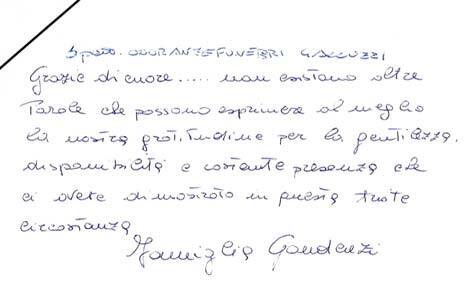 Spett. ONORANZE FUNEBRI GALLUZZI
Grazie di cuore..... non esistono altre
Parole che possono esprimere al meglio
la nostra gratitudine per la gentilezza,
disponibilità e costante presenza che
ci avete dimostrato in questa triste
circostanza
Famiglia Gaudenzi